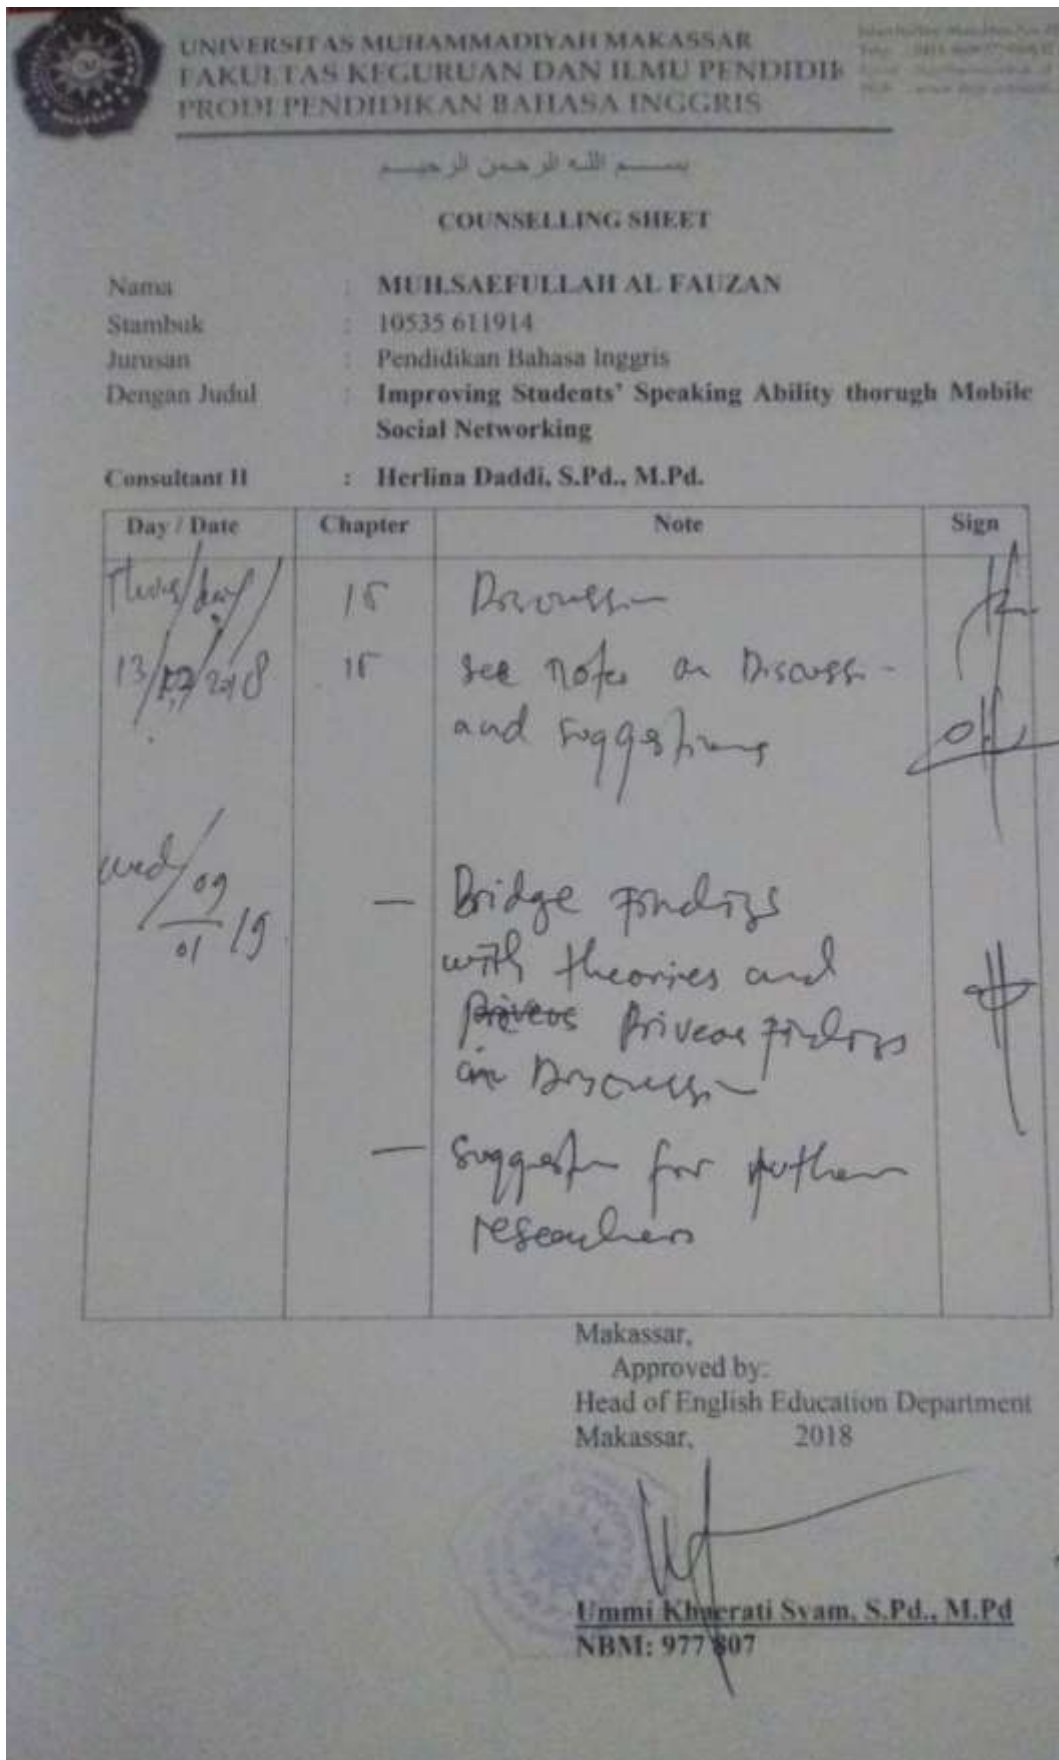 UNIVERSITAS MUHAMMADIYAH MAKASSAR
FAKULTAS KEGURUAN DAN ILMU PENDIDIK
PRODI PENDIDIKAN BAHASA INGGRIS
بســـم الله الرحمن الرحيـــم
COUNSELLING SHEET
Nama : MUH.SAEFULLAH AL FAUZAN
Stambuk : 10535 611914
Jurusan : Pendidikan Bahasa Inggris
Dengan Judul : Improving Students' Speaking Ability thorugh Mobile
Social Networking
Consultant II : Herlina Daddi, S.Pd., M.Pd.
Day / Date Chapter Note Sign
Discussion
13/12/2018 see notes on Discussi-
and suggestions
Wed/09/01/19 — Bridge findings
with theories and
Priveos Priveos findings
in Discussion
— Suggestion for further
researchers
Makassar,
Approved by:
Head of English Education Department
Makassar, 2018
Ummi Khaerati Syam, S.Pd., M.Pd
NBM: 977 807